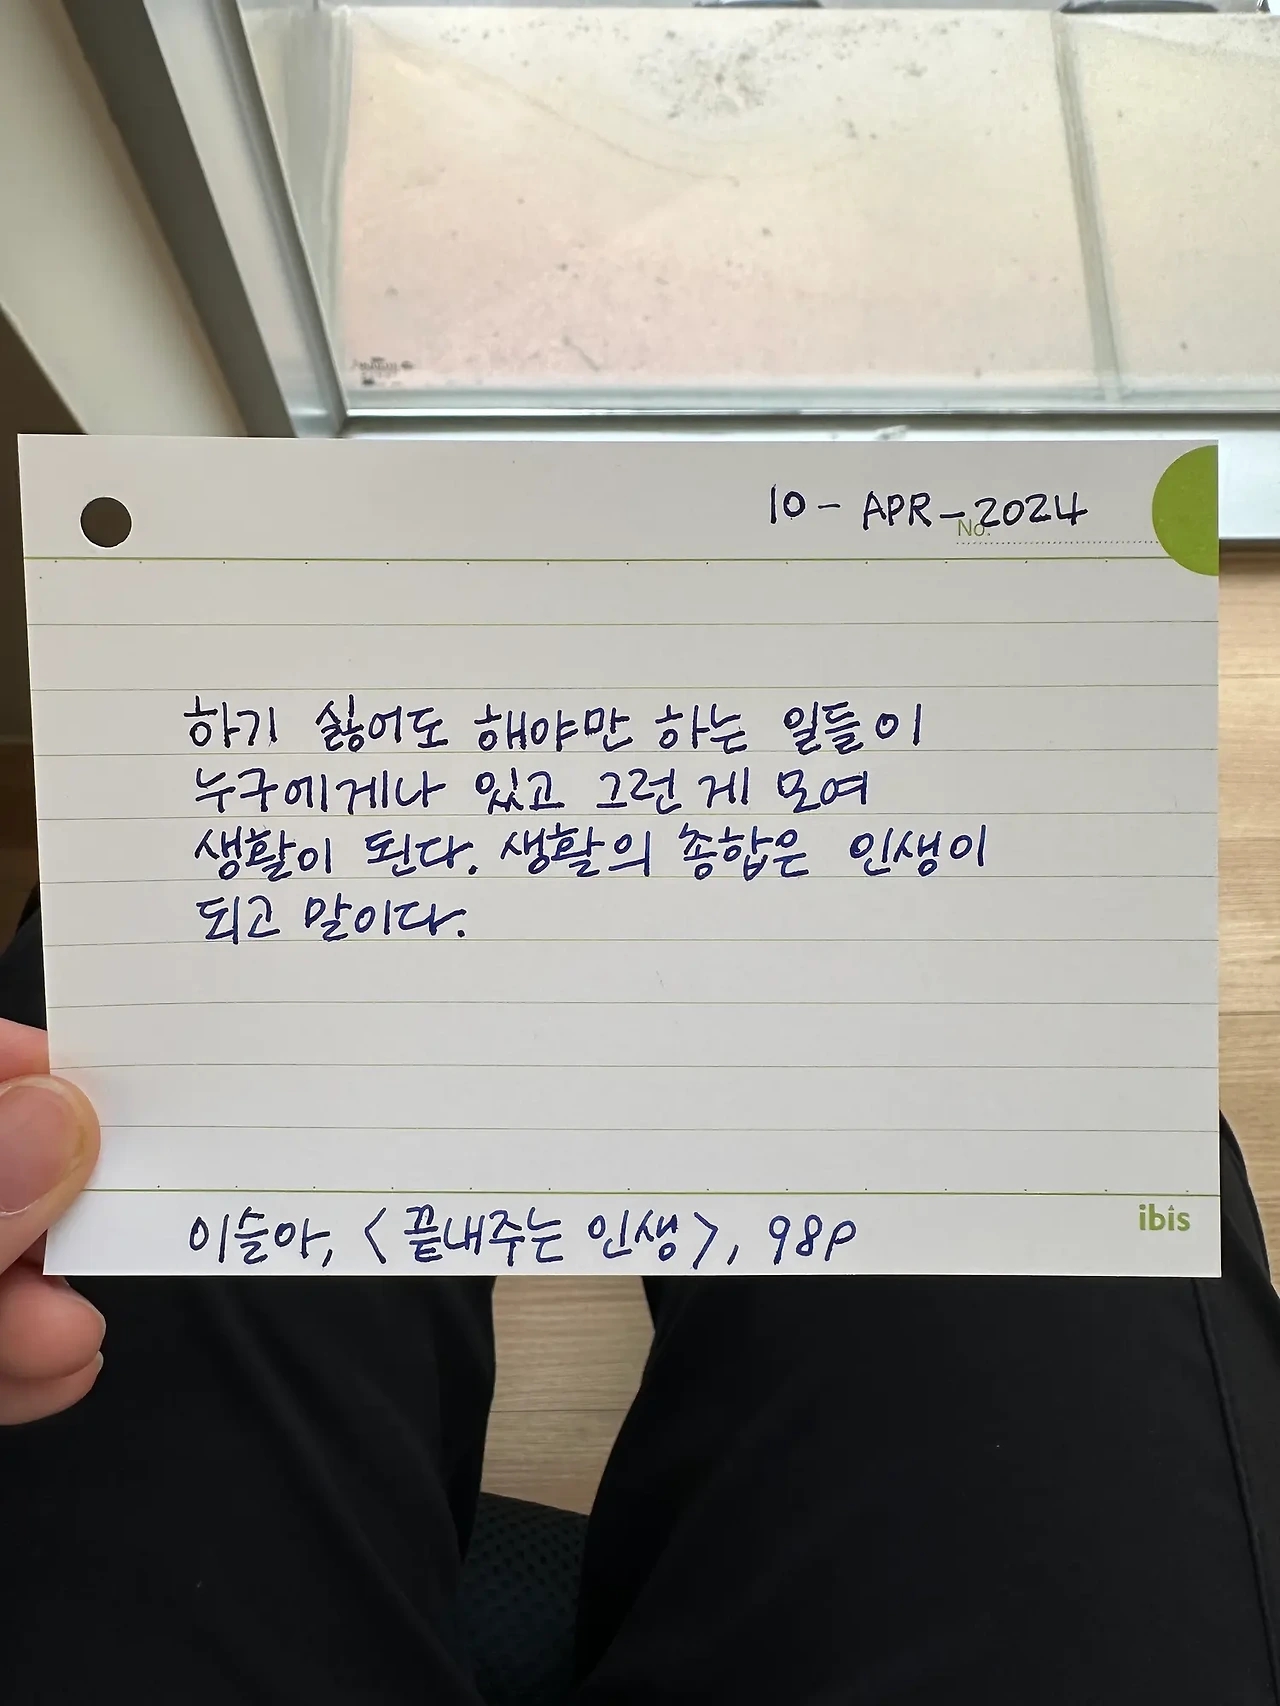 10 - APR - 2024
No.
하기 싫어도 해야만 하는 일들이
누구에게나 있고 그런 게 모여
생활이 된다. 생활의 종합은 인생이
되고 말이다.
이슬아, <끝내주는 인생>, 98p
ibis